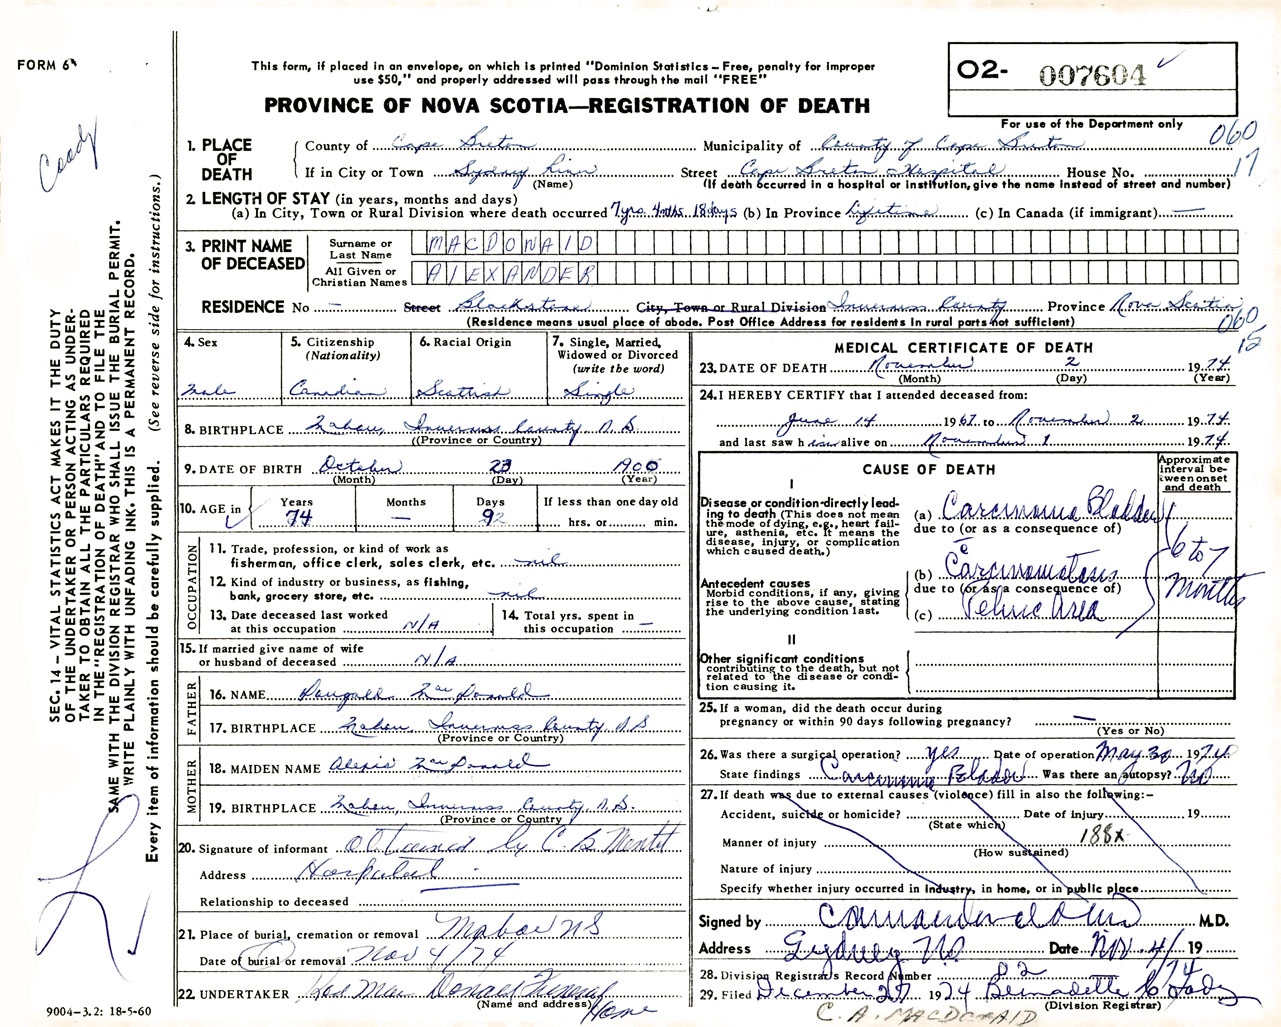 FORM 6
This form, if placed in an envelope, on which is printed "Dominion Statistics – Free, penalty for improper
use $50," and properly addressed will pass through the mail "FREE"
PROVINCE OF NOVA SCOTIA—REGISTRATION OF DEATH
02- 007604
For use of the Department only
060
17
Coady
SEC. 14 – VITAL STATISTICS ACT MAKES IT THE DUTY
OF THE UNDERTAKER OR PERSON ACTING AS UNDER-
TAKER TO OBTAIN ALL THE PARTICULARS REQUIRED
IN THE "REGISTRATION OF DEATH" AND TO FILE THE
SAME WITH THE DIVISION REGISTRAR WHO SHALL ISSUE THE BURIAL PERMIT.
WRITE PLAINLY WITH UNFADING INK. THIS IS A PERMANENT RECORD.
Every item of information should be carefully supplied. (See reverse side for instructions.)
1. PLACE OF DEATH
County of Cape Breton Municipality of County of Cape Breton
If in City or Town Sydney River Street Cape Breton Hospital House No.
(Name) (If death occurred in a hospital or institution, give the name instead of street and number)
2. LENGTH OF STAY (in years, months and days)
(a) In City, Town or Rural Division where death occurred 7yrs. 4mths. 18days (b) In Province Lifetime (c) In Canada (if immigrant) —
3. PRINT NAME OF DECEASED
Surname or Last Name MACDONALD
All Given or Christian Names ALEXANDER
RESIDENCE No – Street Blackstone City, Town or Rural Division Inverness County Province Nova Scotia
(Residence means usual place of abode. Post Office Address for residents in rural parts not sufficient)
060
15
4. Sex
male
5. Citizenship (Nationality)
Canadian
6. Racial Origin
Scottish
7. Single, Married, Widowed or Divorced (write the word)
Single
8. BIRTHPLACE Mabou, Inverness County N.S.
(Province or Country)
9. DATE OF BIRTH October 23 1900
(Month) (Day) (Year)
10. AGE in Years Months Days If less than one day old
74 – hrs. or min.
OCCUPATION
11. Trade, profession, or kind of work as
fisherman, office clerk, sales clerk, etc. nil
12. Kind of industry or business, as fishing,
bank, grocery store, etc. nil
13. Date deceased last worked
at this occupation N/A
14. Total yrs. spent in
this occupation –
15. If married give name of wife
or husband of deceased N/A
FATHER
16. NAME Dougald MacDonald
17. BIRTHPLACE Mabou, Inverness County N.S
(Province or Country)
MOTHER
18. MAIDEN NAME Alexis MacDonald
19. BIRTHPLACE Mabou, Inverness County N.S.
(Province or Country
20. Signature of informant obtained by C. B. Mental
Address Hospital
Relationship to deceased
21. Place of burial, cremation or removal Mabou NS
Date of burial or removal Nov 4/74
22. UNDERTAKER MacDonald Funeral
(Name and address) Home
9004–3.2: 18-5-60
MEDICAL CERTIFICATE OF DEATH
23. DATE OF DEATH November 2 1974
(Month) (Day) (Year)
24. I HEREBY CERTIFY that I attended deceased from:
June 14 1967 to November 2 1974
and last saw him alive on November 1 1974
CAUSE OF DEATH
Approximate interval between onset and death
I
Disease or condition directly lead-
ing to death (This does not mean
the mode of dying, e.g., heart fail-
ure, asthenia, etc. It means the
disease, injury, or complication
which caused death.)
(a) Carcinoma Bladder
due to (or as a consequence of)
c̄
Antecedent causes
Morbid conditions, if any, giving
rise to the above cause, stating
the underlying condition last.
(b) Carcinomatosis
due to (or as a consequence of)
(c) Pelvic Area
6 to 7
Months
II
Other significant conditions
contributing to the death, but not
related to the disease or condi-
tion causing it.
25. If a woman, did the death occur during
pregnancy or within 90 days following pregnancy? —
(Yes or No)
26. Was there a surgical operation? yes Date of operation May 30 1974
State findings Carcinoma Bladder Was there an autopsy? No
27. If death was due to external causes (violence) fill in also the following:–
Accident, suicide or homicide? Date of injury 19
(State which)
Manner of injury 188X
(How sustained)
Nature of injury
Specify whether injury occurred in industry, in home, or in public place
Signed by M.D.
Address Sydney NS Date Nov. 4/ 19 74
28. Division Registrar's Record Number 82
29. Filed December 27 1974 Bernadette Coady
(Division Registrar)
C. A. MACDONALD